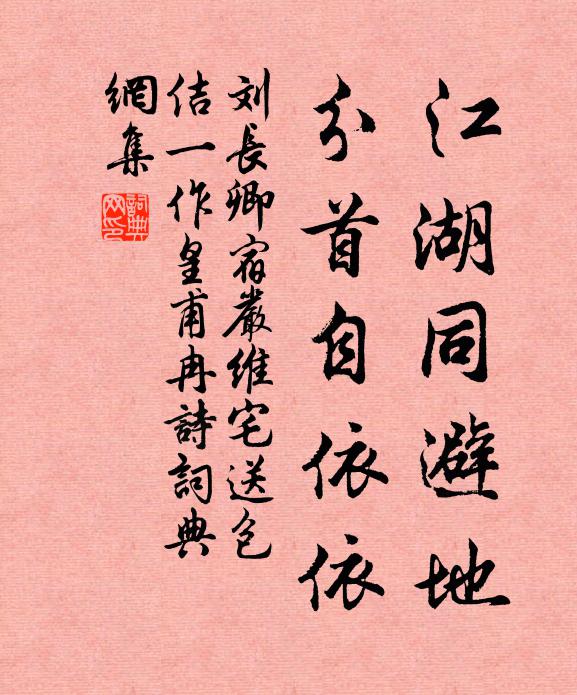 江湖同避地
分首自依依
刘長卿宿嚴維宅送包
佶一作皇甫冉詩詞典
網集
詞典网印